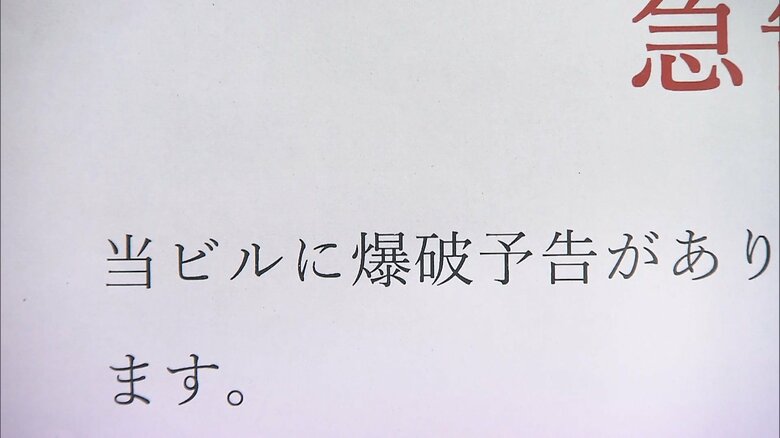 急
当ビルに爆破予告があり
ます。